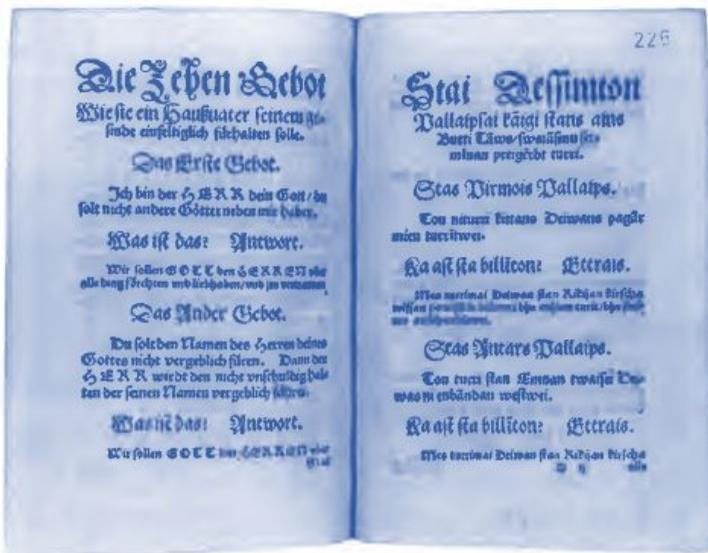 Die Zehen Gebot
Wie sie ein Haußuater seinem ge-
sinde einfeltiglich fürhalten solle.
Das Erste Gebot.
Ich bin der HERR dein Gott/ du
solt nicht andere Götter neben mir haben.
Was ist das? Antwort.
Wir sollen GOTT den HERREN vber
alle ding förchten vnd liebhaben/ vnd jm vertrawen
Das Ander Gebot.
Du solt den Namen des Herren deines
Gottes nicht vergeblich füren. Dann der
HERR wirdt den nicht vnschuldig hal-
ten der seinen Namen vergeblich füret.
Was ist das? Antwort.
Wir sollen GOTT den HERREN vber
226
Stai Dessimton
Pallaipsai kāigi stans ains
Butti Tāws/ swaiāsmu
minan preigērbt turri.
Stas Pirmois Pallaips.
Tou niturri kittans Deiwans pagār
mien turritwei.
Ka ast sta billīton? Ettrais.
Mes turrimai Deiwan stan Rikijan kirscha
wissan
Stas Antars Pallaips.
Tou turri stan Emnan twaisei Dei-
was ni enbāndan westwei.
Ka ast sta billīton? Ettrais.
Mes turrimai Deiwan stan Rikijan kirscha